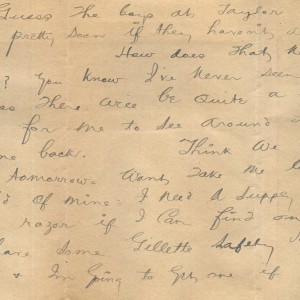 Guess the boys at Taylor
pretty soon if they haven't
How does that
? You know I've never seen
There will be quite a
for me to see around
back. Think We
tomorrow. Wants take me
of mine. I need a supply
razor if I can find
have some Gillette Safety
& I'm going to get one if